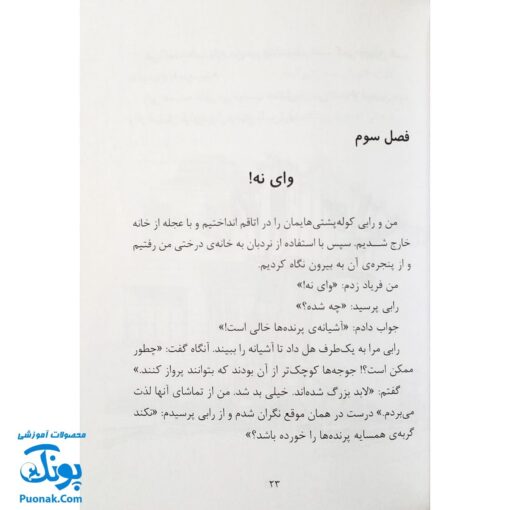 فصل سوم
وای نه!
من و رابی کوله‌پشتی‌هایمان را در اتاقم انداختیم و با عجله از خانه
خارج شـدیم. سپس با استفاده از نردبان به خانه‌ی درختی من رفتیم
و از پنجره‌ی آن به بیرون نگاه کردیم.
من فریاد زدم: «وای نه!»
رابی پرسید: «چه شده؟»
جواب دادم: «آشیانه‌ی پرنده‌ها خالی است!»
رابی مرا به یک‌طرف هل داد تا آشیانه را ببیند. آنگاه گفت: «چطور
ممکن است؟! جوجه‌ها کوچک‌تر از آن بودند که بتوانند پرواز کنند.»
گفتم: «لابد بزرگ شده‌اند. خیلی بد شد. من از تماشای آنها لذت
می‌بردم.» درست در همان موقع نگران شدم و از رابی پرسیدم: «نکند
گربه‌ی همسایه پرنده‌ها را خورده باشد؟»
۲۳
محصولات آموزشی
پونک
Puonak.Com